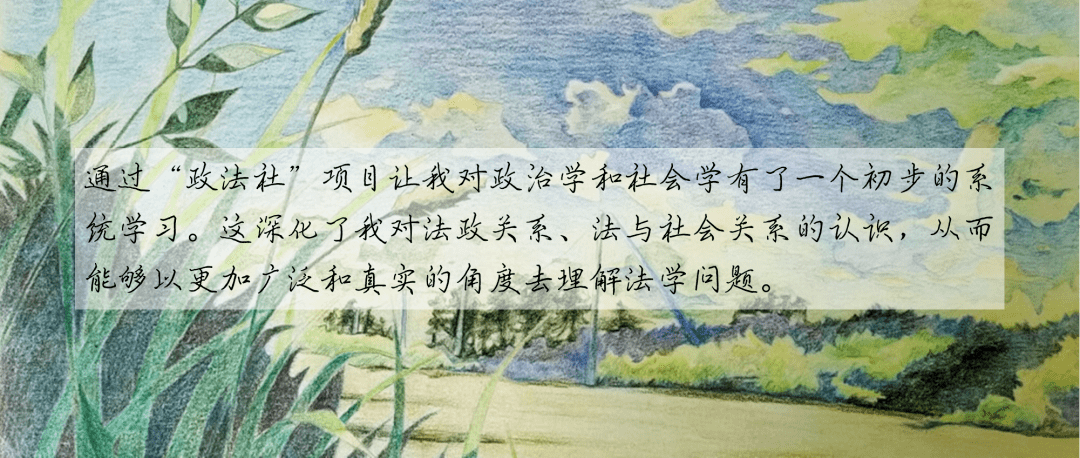 通过“政法社”项目让我对政治学和社会学有了一个初步的系
统学习。这深化了我对法政关系、法与社会关系的认识，从而
能够以更加广泛和真实的角度去理解法学问题。